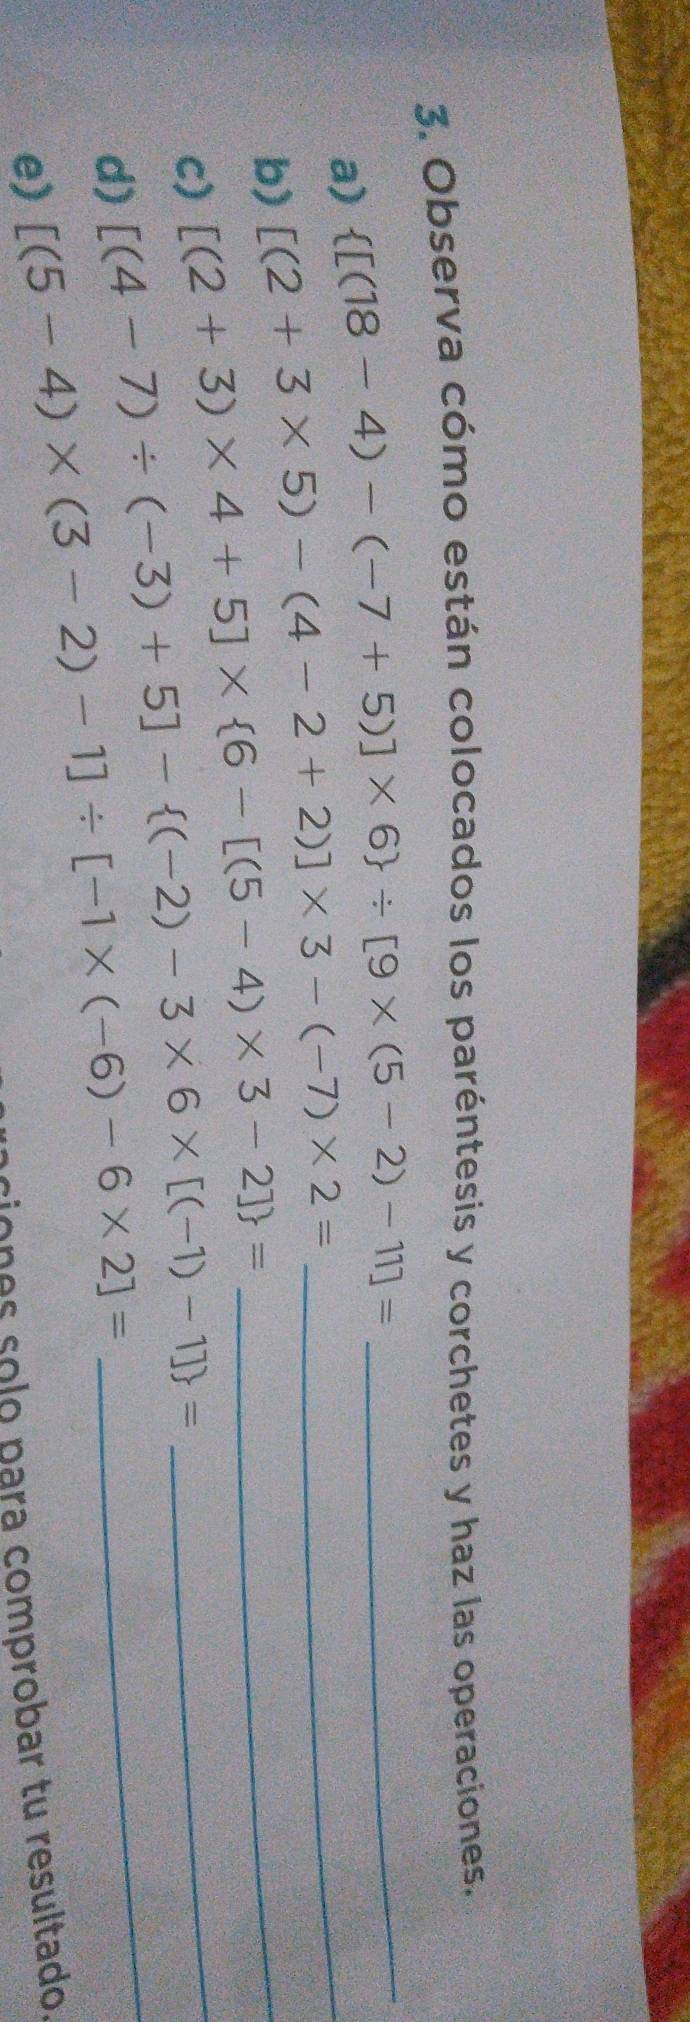 3. Observa cómo están colocados los paréntesis y corchetes y haz las operaciones.
a) {[(18 − 4) − (−7 + 5)] × 6} ÷ [9 × (5 − 2) − 11] =
b) [(2 + 3 × 5) − (4 − 2 + 2)] × 3 − (−7) × 2 =
c) [(2 + 3) × 4 + 5] × {6 − [(5 − 4) × 3 − 2]} =
d) [(4 − 7) ÷ (−3) + 5] − {(−2) − 3 × 6 × [(−1) − 1]} =
e) [(5 − 4) × (3 − 2) − 1] ÷ [−1 × (−6) − 6 × 2] =
solo para comprobar tu resultado.